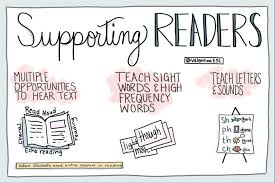 Supporting READERS
@valentinaESL
MULTIPLE
OPPORTUNITIES
TO HEAR TEXT
TEACH SIGHT
WORDS & HIGH
FREQUENCY
WORDS
TEACH LETTERS
& SOUNDS
Read Aloud
Choral
Echo reading
light
though
Sh
ph
th
ch
When students need extra support in reading